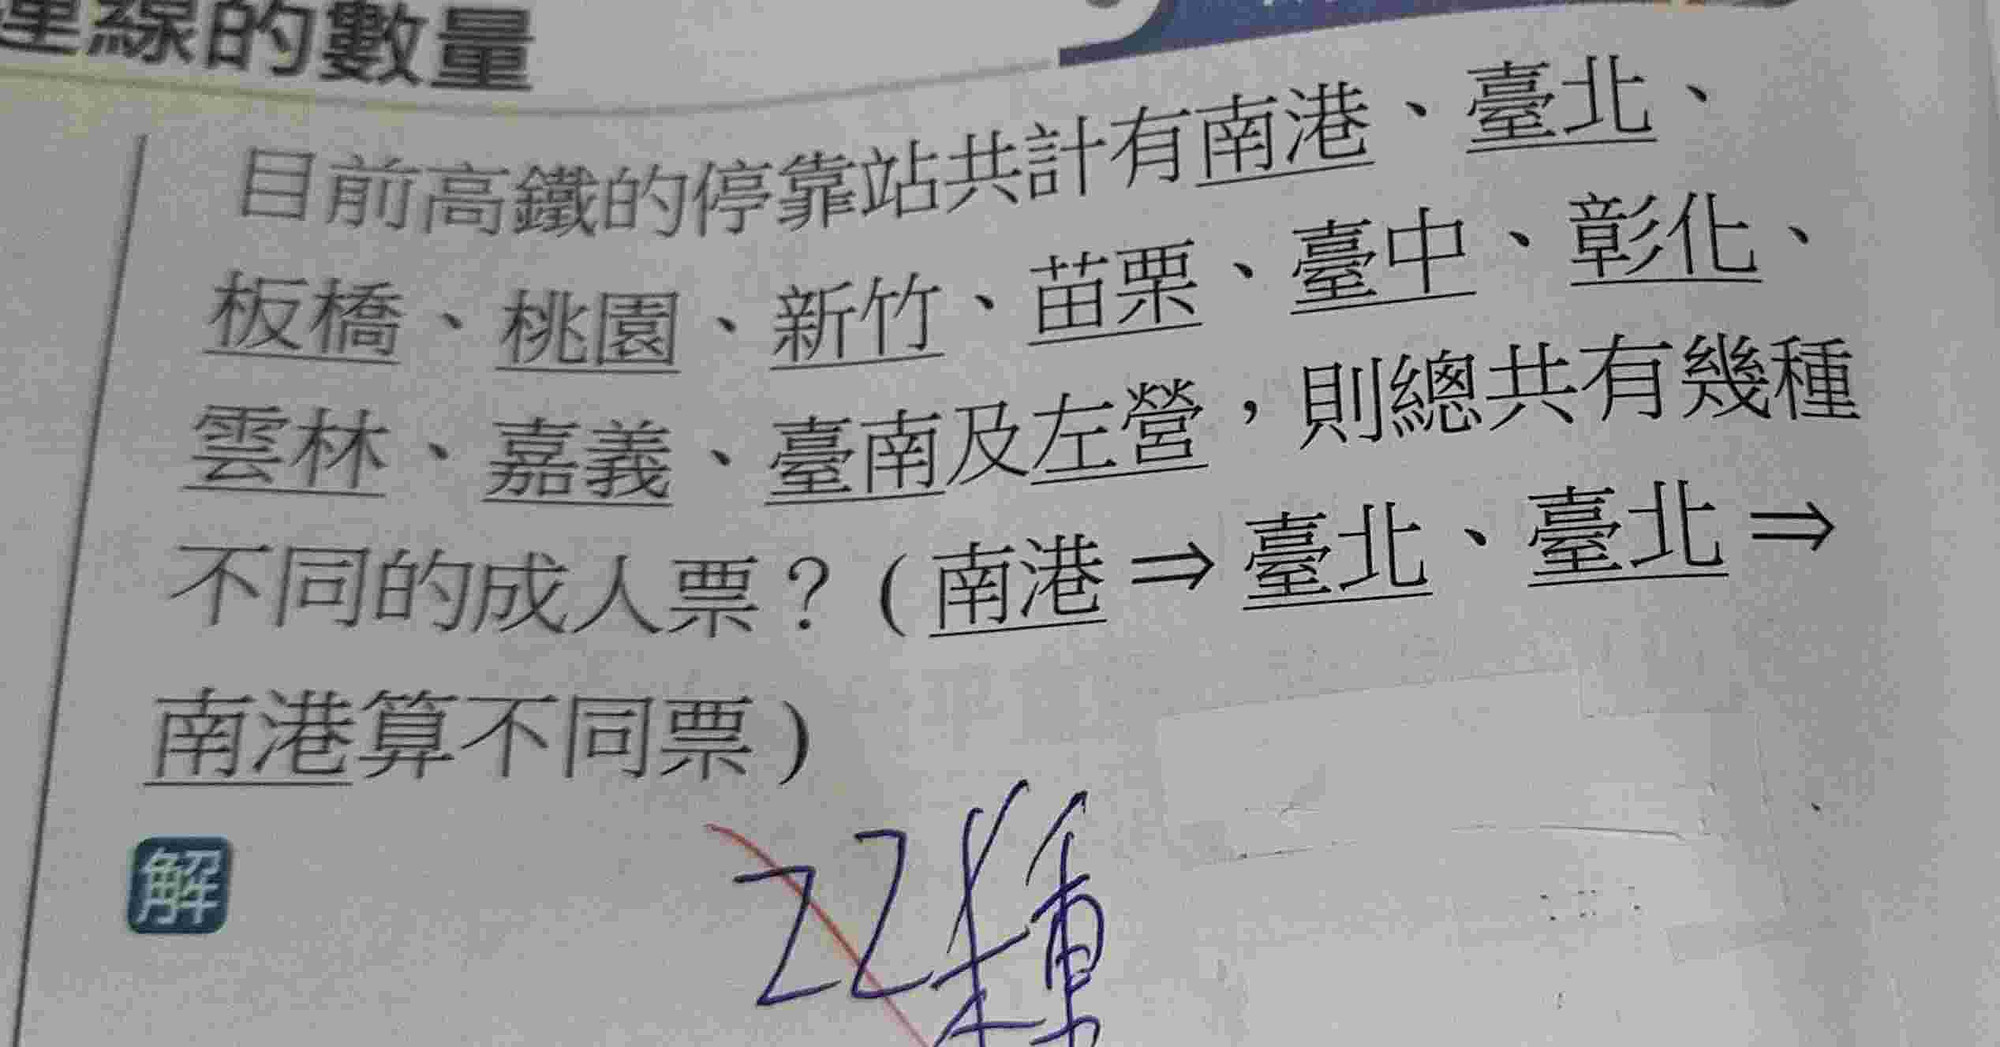 連線的數量
目前高鐵的停靠站共計有南港、臺北、
板橋、桃園、新竹、苗栗、臺中、彰化、
雲林、嘉義、臺南及左營，則總共有幾種
不同的成人票？(南港⇒臺北、臺北⇒
南港算不同票)
解
22種